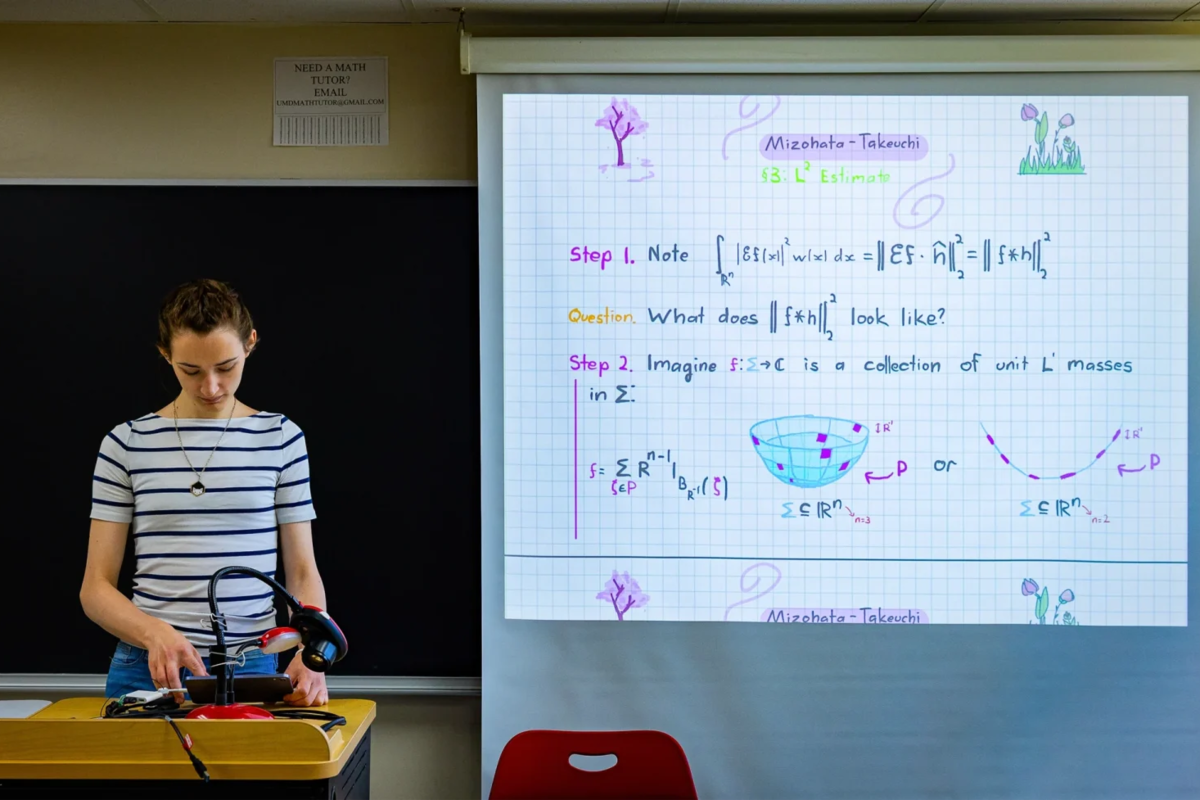 NEED A MATH
TUTOR?
EMAIL
UMDMATHTUTOR@GMAIL.COM
Mizohata - Takeuchi
§3: L² Estimate
Step 1. Note ∫_{ℝⁿ} |Ɛf(x)|² w(x) dx = ‖Ɛf · ĥ‖₂² = ‖f*h‖₂²
Question. What does ‖f*h‖₂² look like?
Step 2. Imagine f: Σ → ℂ is a collection of unit L¹ masses
in Σ:
f = Σ_{ζ∈P} R^{n-1} 1_{B_{R⁻¹}(ζ)}
I R⁻¹
P
or
I R⁻¹
P
Σ ⊆ ℝⁿ
n=3
Σ ⊆ ℝⁿ
n=2
Mizohata - Takeuchi